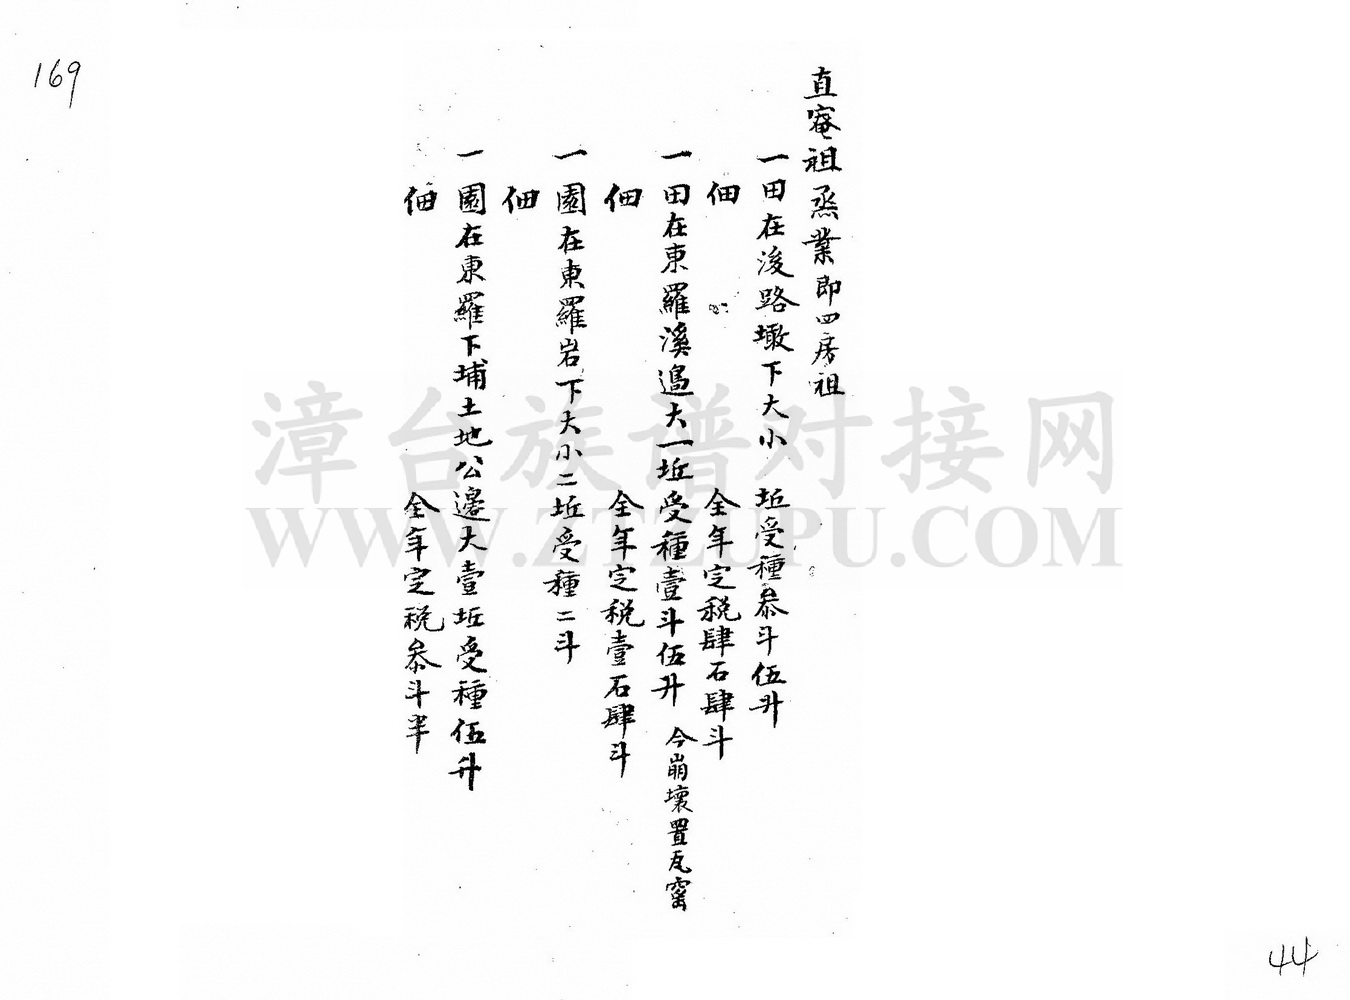 169
直窀祖烝業即四房祖
一田在後路墩下大小 坵受種叅斗伍升
佃 全年定税肆石肆斗
一田在東羅溪邊大一坵受種壹斗伍升 今崩壞置瓦窑
佃 全年定税壹石肆斗
一園在東羅岩下大小二坵受種二斗
佃
一園在東羅下埔土地公邊大壹坵受種伍升
佃 全年定税叅斗半
漳台族谱对接网
WWW.ZTZUPU.COM
44